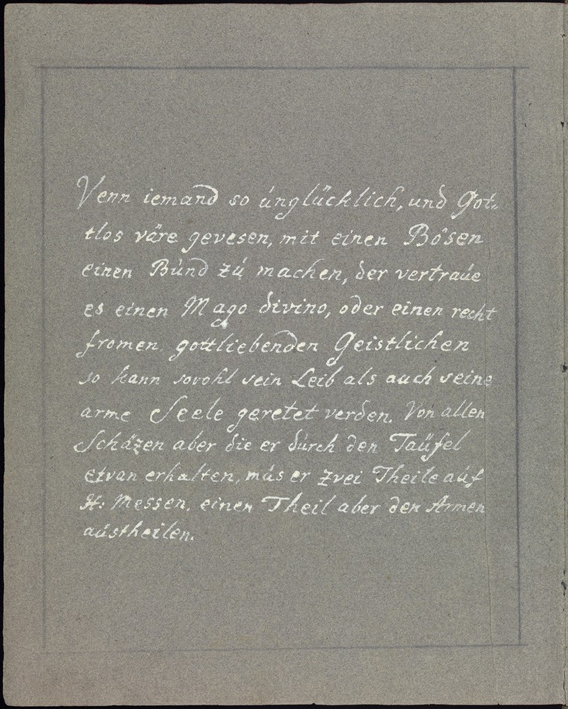 Venn iemand so únglücklich, und Got-
tlos väre gevesen, mit einen Bösen
einen Búnd zú machen, der vertraúe
es einen Mago divino, oder einen recht
fromen gottliebenden Geistlichen
so kann sovohl sein Leib als auch seine
arme Seele geretet verden. Von allen
Schäzen aber die er dúrch den Taüfel
etvan erhalten, mús er zvei Theile aúf
H: Messen, einen Theil aber den Armen
aústheilen.